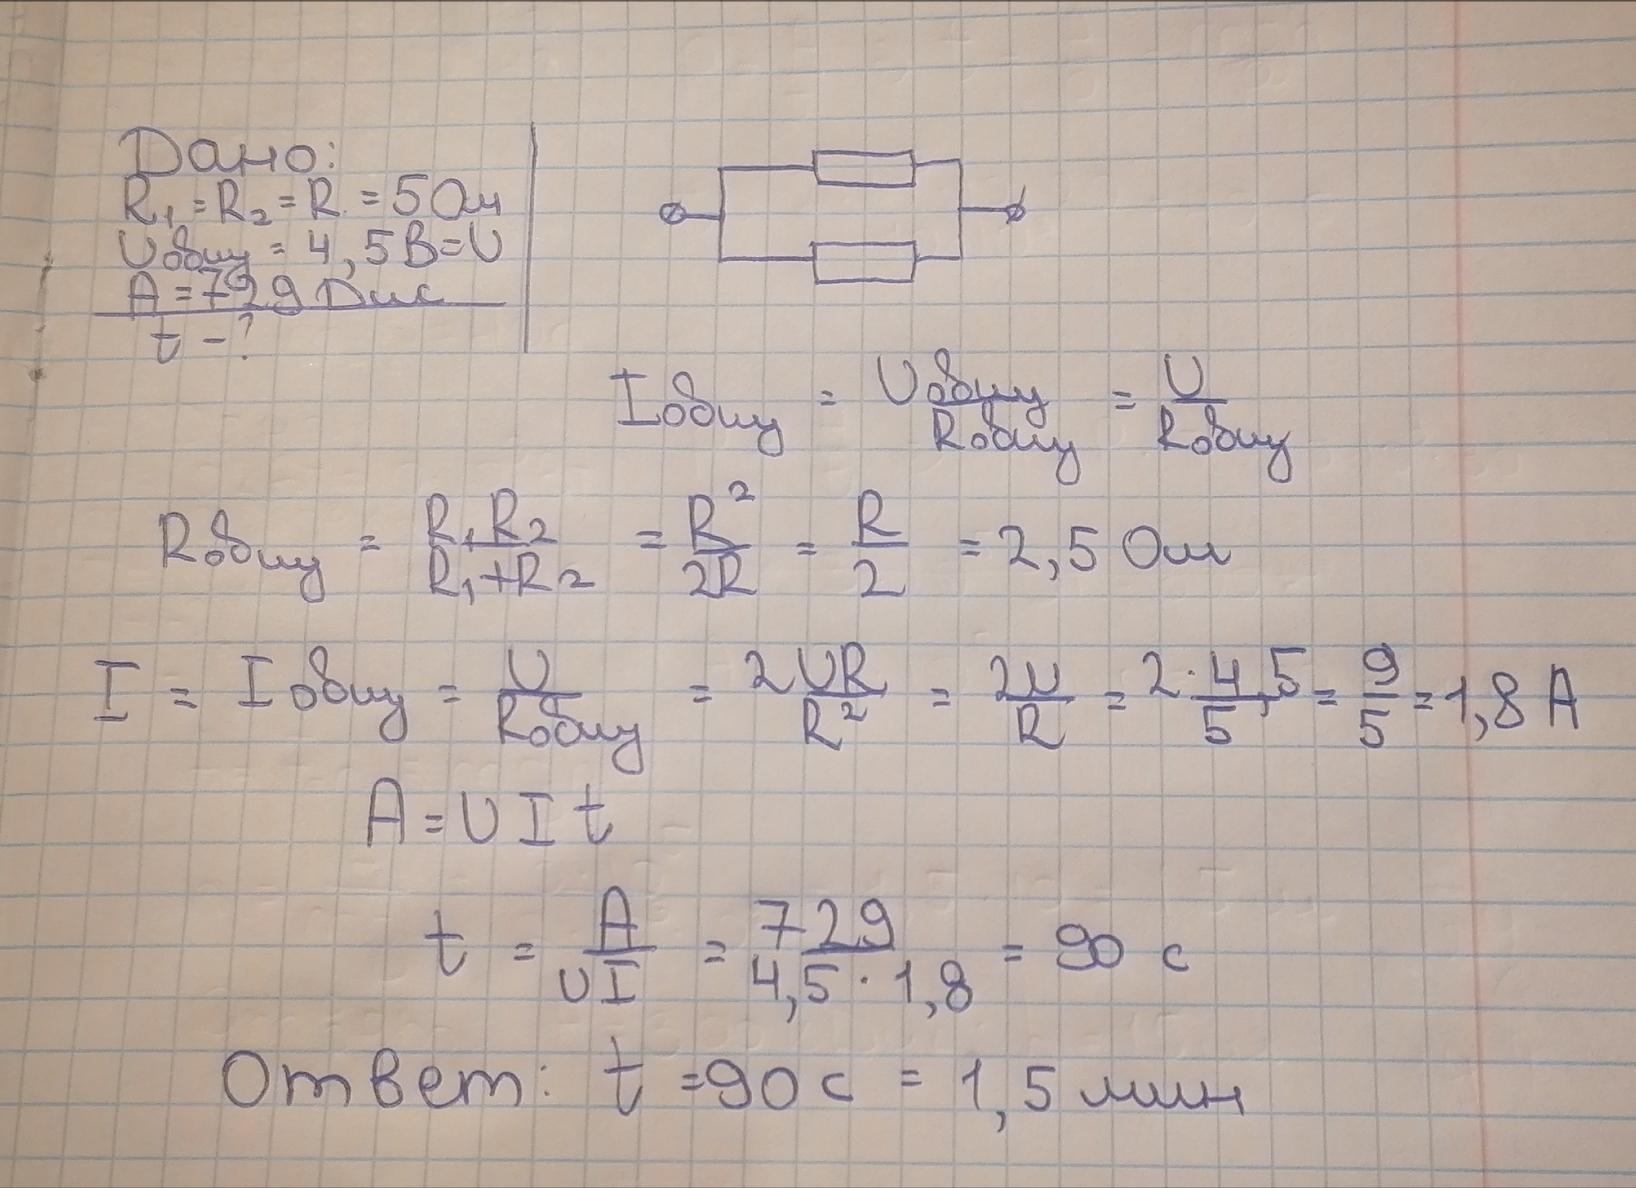 Дано:
R₁ = R₂ = R = 5 Ом
Uобщ = 4,5 В = U
A = 729 Дж
t - ?
Iобщ = Uобщ/Rобщ = U/Rобщ
Rобщ = R₁R₂/(R₁+R₂) = R²/2R = R/2 = 2,5 Ом
I = Iобщ = U/Rобщ = 2UR/R² = 2U/R = 2·4,5/5 = 9/5 = 1,8 А
A = UIt
t = A/UI = 729/(4,5·1,8) = 90 с
Ответ: t = 90 с = 1,5 мин